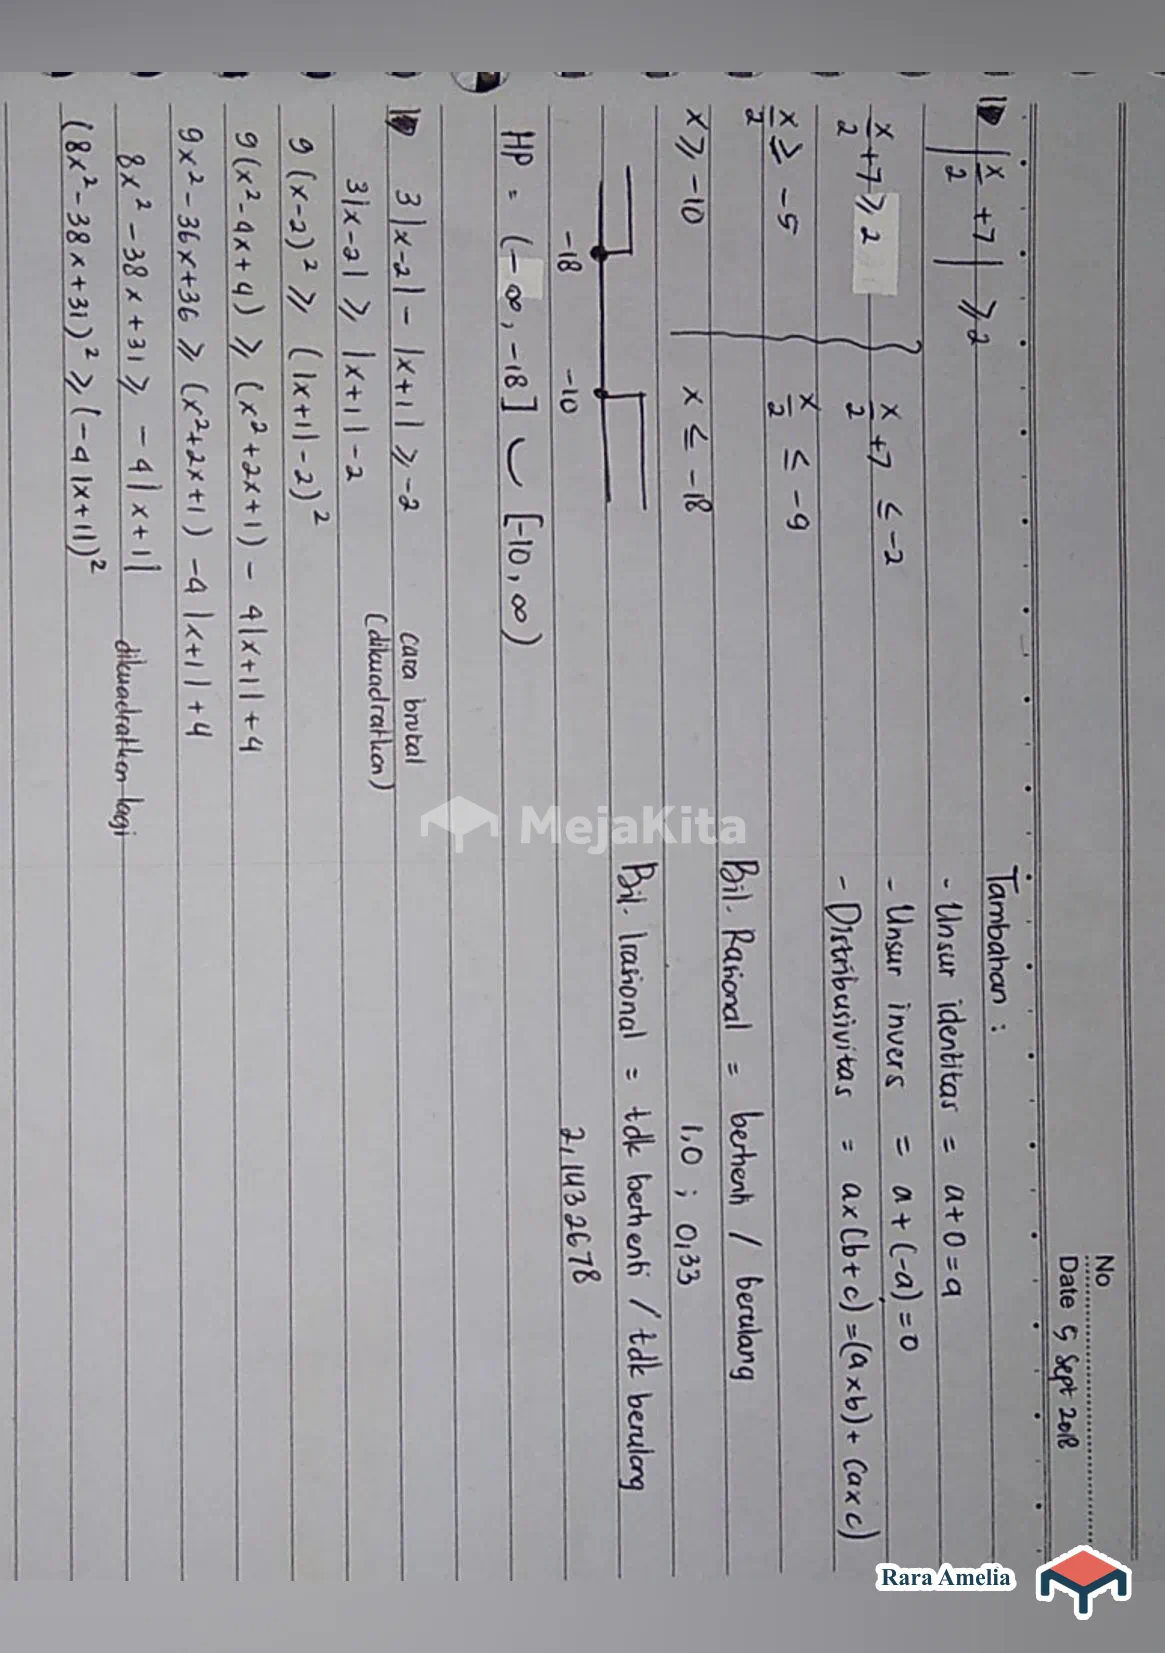 No
Date 5 Sept 2018
|x/2 + 7| ≥ 2
x/2 + 7 ≥ 2
x/2 + 7 ≤ -2
x/2 ≥ -5
x/2 ≤ -9
x ≥ -10
x ≤ -18
-18 -10
HP = (-∞, -18] ∪ [-10, ∞)
3|x-2| - |x+1| ≥ -2
cara brutal
3|x-2| ≥ |x+1| - 2
(dikuadratkan)
9(x-2)² ≥ (|x+1| - 2)²
9(x²-4x+4) ≥ (x²+2x+1) - 4|x+1| + 4
9x² - 36x + 36 ≥ (x²+2x+1) - 4|x+1| + 4
8x² - 38x + 31 ≥ -4|x+1|
dikuadratkan lagi
(8x² - 38x + 31)² ≥ (-4|x+1|)²
Tambahan :
- Unsur identitas = a+0 = a
- Unsur invers = a + (-a) = 0
- Distribusivitas = ax(b+c) = (axb) + (axc)
Bil. Rasional = berhenti / berulang
1,0 ; 0,33
Bil. Irasional = tdk berhenti / tdk berulang
2,1432678
MejaKita
Rara Amelia